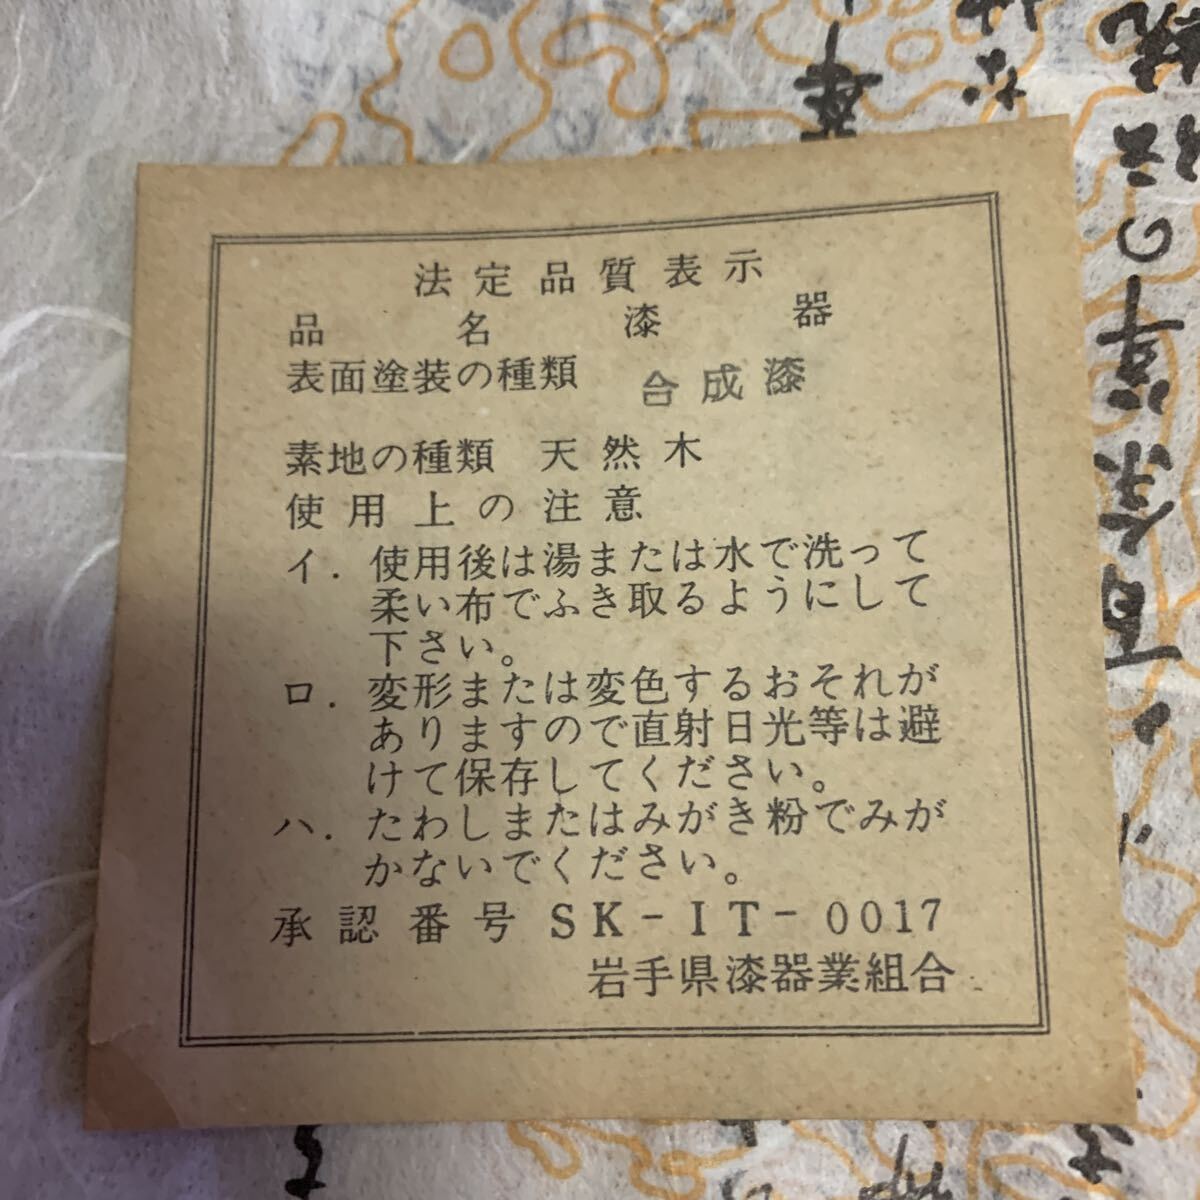 法定品質表示
品名 漆器
表面塗装の種類 合成漆
素地の種類 天然木
使用上の注意
イ. 使用後は湯または水で洗って
柔い布でふき取るようにして
下さい。
ロ. 変形または変色するおそれが
ありますので直射日光等は避
けて保存してください。
ハ. たわしまたはみがき粉でみが
かないでください。
承認番号 SK-IT-0017
岩手県漆器業組合